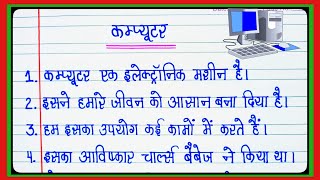 कम्प्यूटर
1. कम्प्यूटर एक इलेक्ट्रॉनिक मशीन है।
2. इसने हमारे जीवन को आसान बना दिया है।
3. हम इसका उपयोग कई कामों में करते हैं।
4. इसका आविष्कार चार्ल्स बैबेज ने किया था।